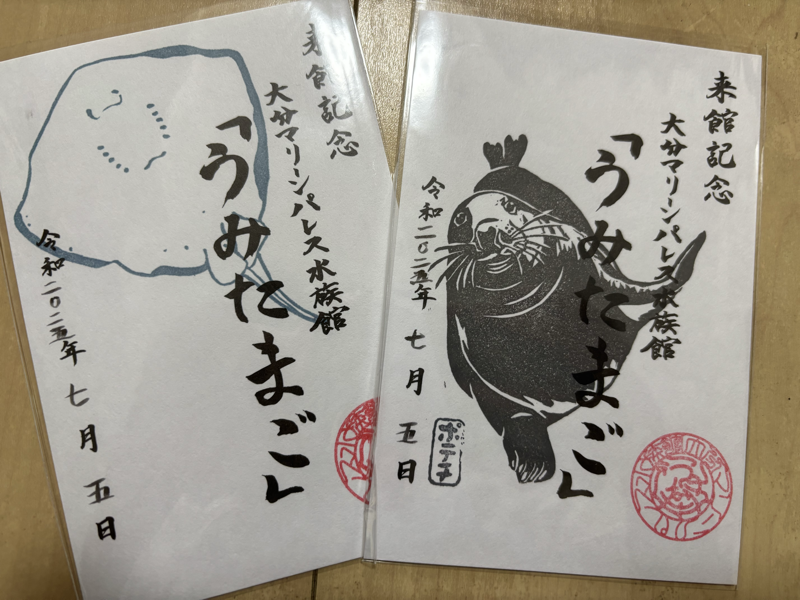 来館記念
大分マリーンパレス水族館
「うみたまご」
令和二〇二五年 七月 五日
来館記念
大分マリーンパレス水族館
「うみたまご」
令和二〇二五年 七月 五日
ポテチ